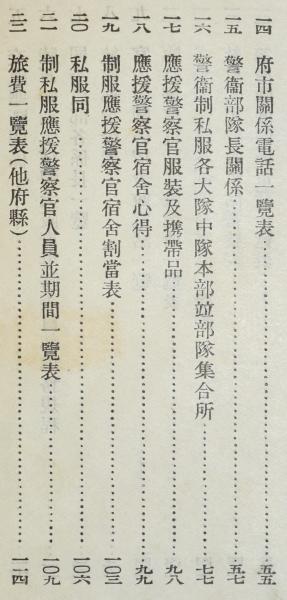 一四 府市關係電話一覽表 五五
一五 警衞部隊長關係 五七
一六 警衞制私服各大隊中隊本部竝部隊集合所 七七
一七 應援警察官服裝及携帶品 九八
一八 應援警察官宿舍心得 九九
一九 制服應援警察官宿舍割當表 一〇三
二〇 私服同 一〇六
二一 制私服應援警察官人員並期間一覽表 一〇九
二二 旅費一覽表(他府縣) 一一四